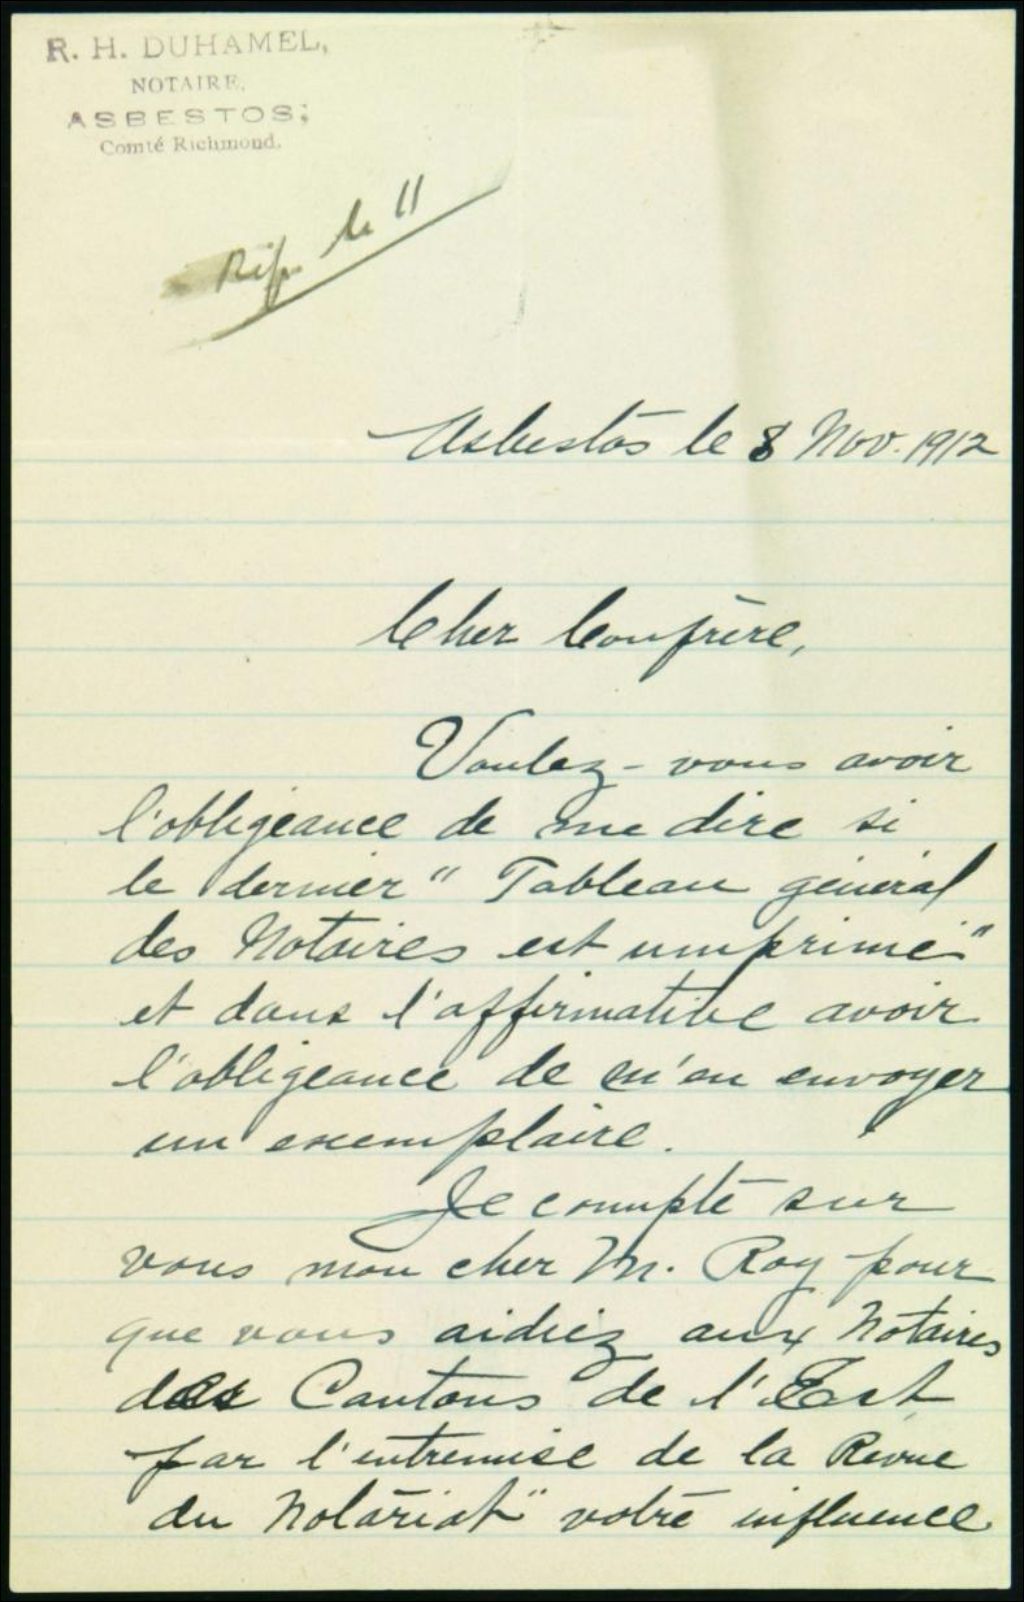 R. H. DUHAMEL,
NOTAIRE,
ASBESTOS,
Comté Richmond.
Rép. le 11
Asbestos le 8 Nov. 1912
Cher Confrère,
Voulez-vous avoir
l'obligeance de me dire si
le dernier "Tableau général
des Notaires est imprimé"
et dans l'affirmative avoir
l'obligeance de m'en envoyer
un exemplaire.
Je compte sur
vous mon cher M. Roy pour
que vous aidiez aux Notaires
des Cantons de l'Est
par l'entremise de la Revue
du Notariat" votre influence